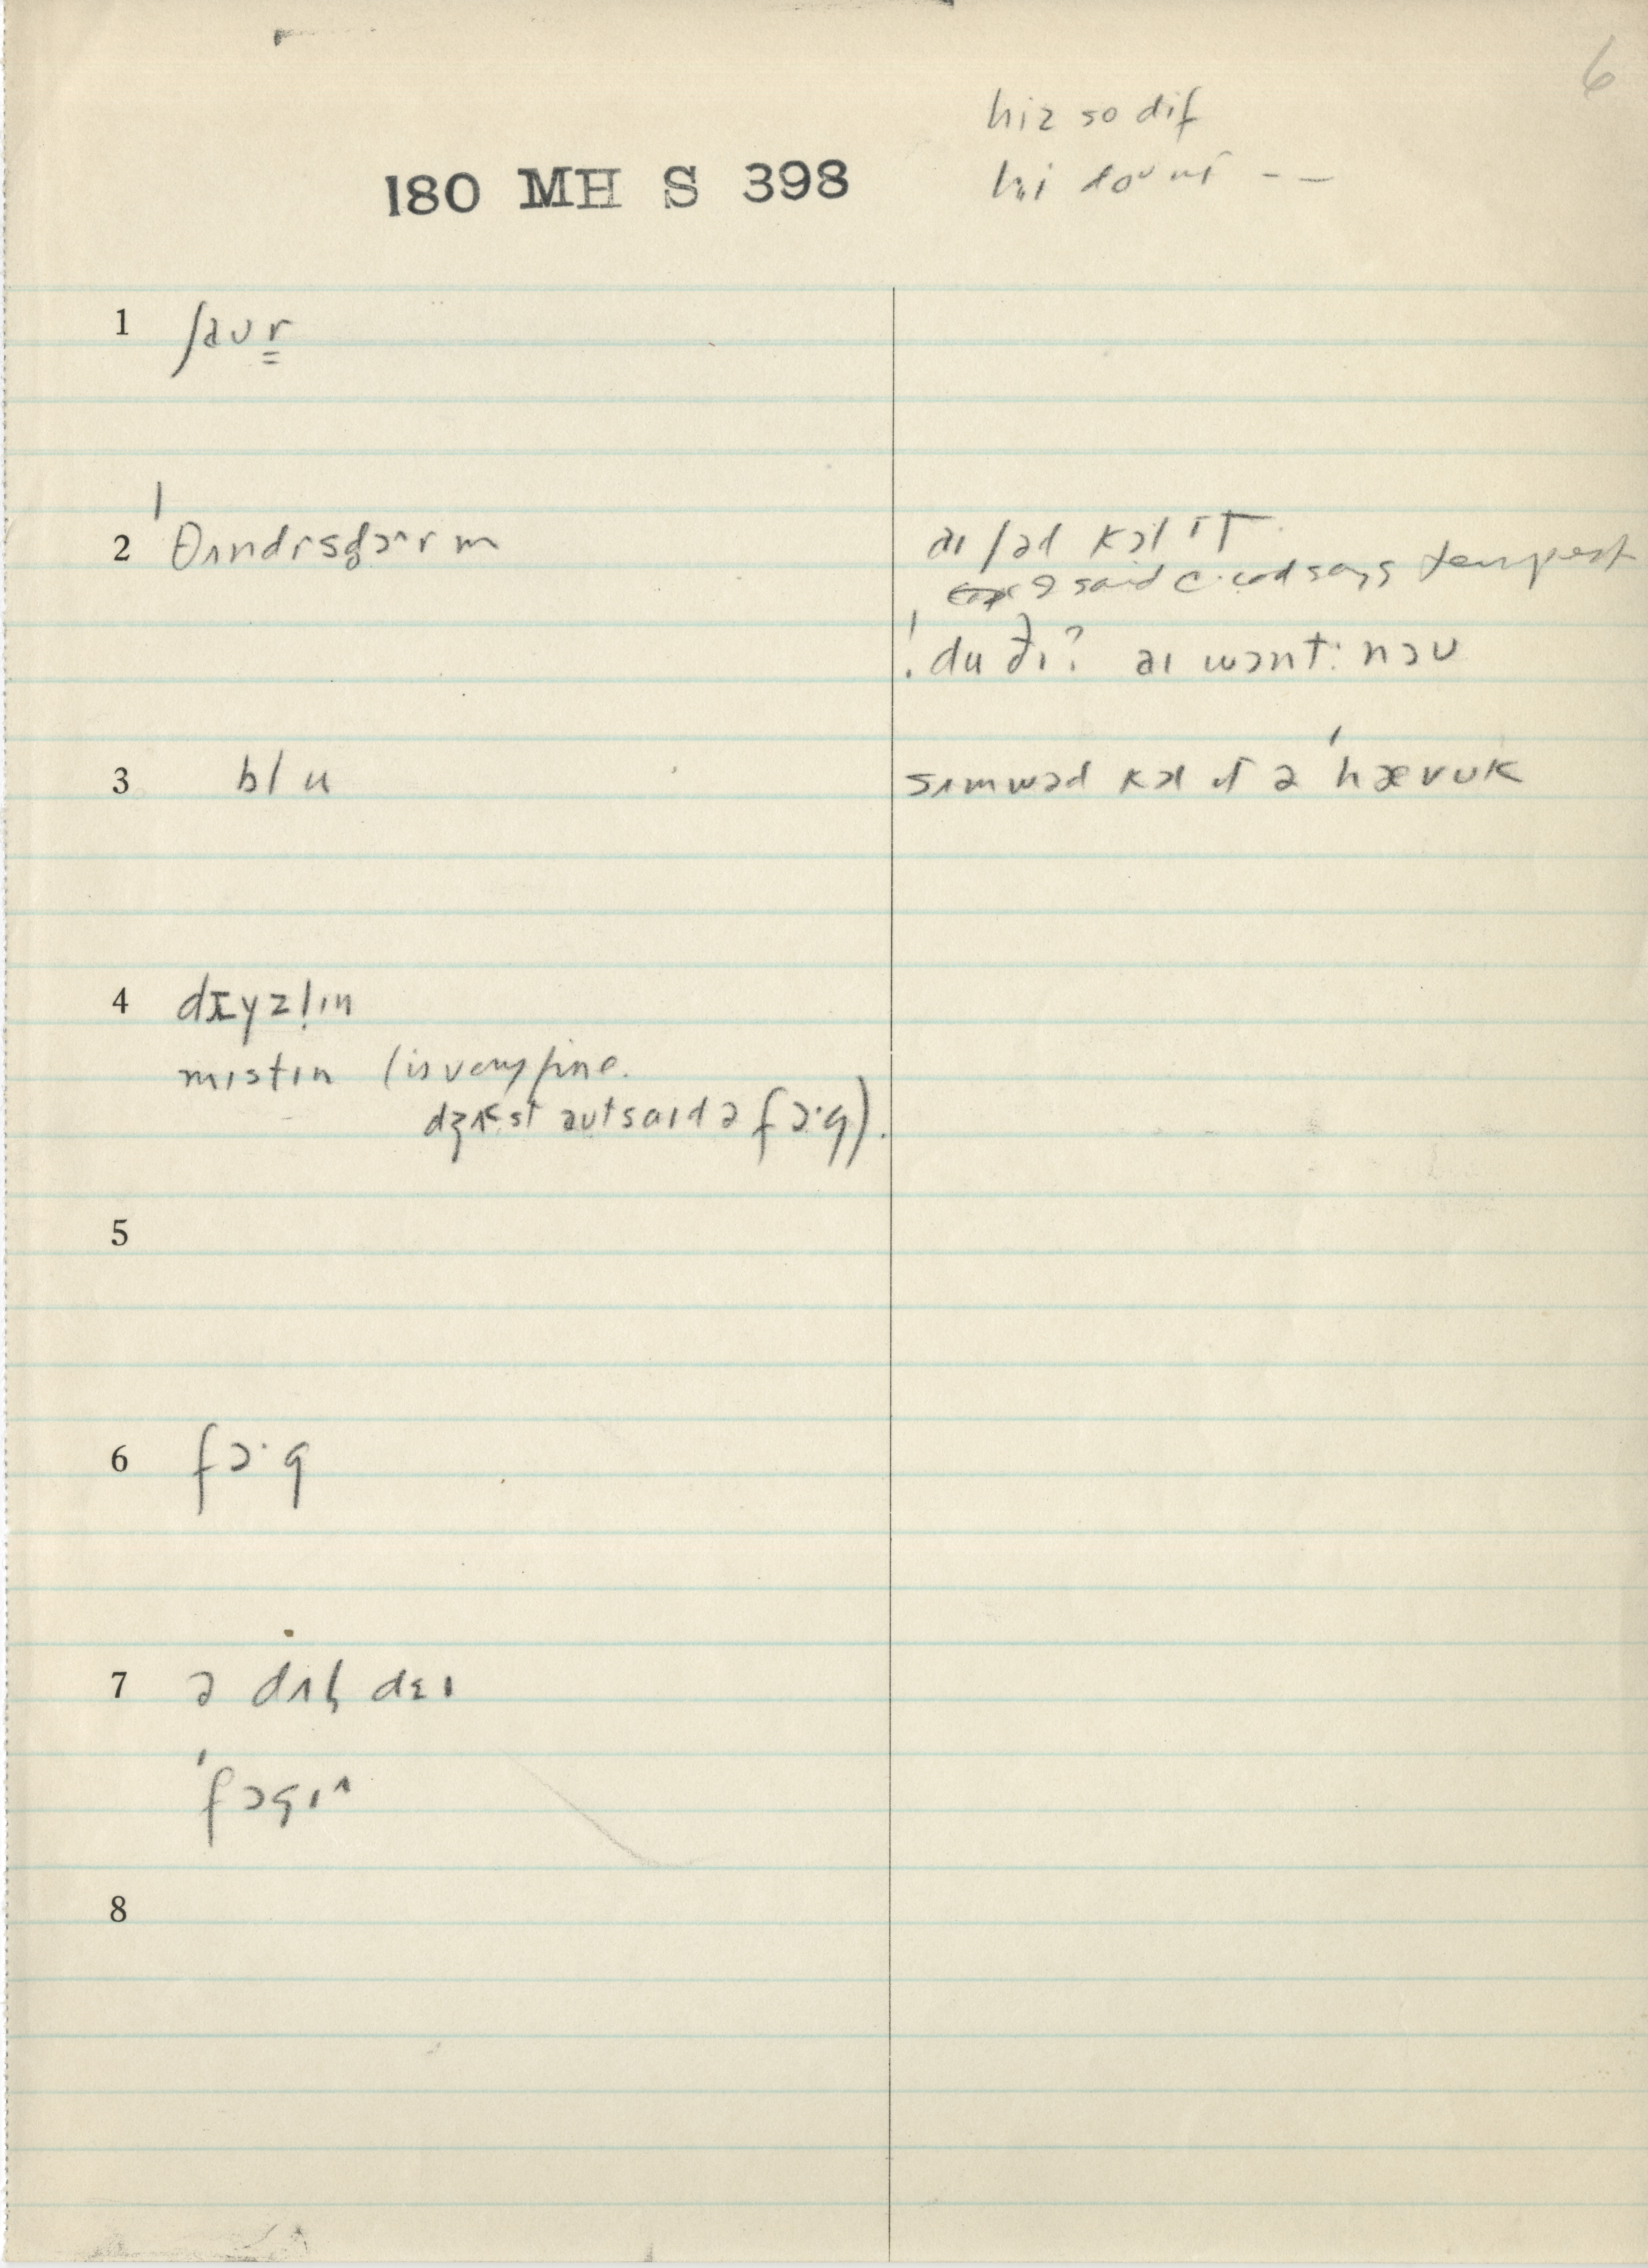 6
hiz so dif
hi
180 MH S 398
1 ʃaʊr
2 ˈθʌndrsdɔˑrm
aɪ ʃəd kɔl ɪt
I said c. cod says tempest
du ðɪ? aɪ wɔnt: nəʊ
3 blu
sʌmwəd kɔl ɪt ə ˈhævʊk
4 dɪyzlɪn
mɪstɪn (is very fine.
dʒʌst aʊtsaɪd ə fɔˑg).
5
6 fɔˑg
7 ə dʌl dɛɪ
ˈfɔgɪ
8